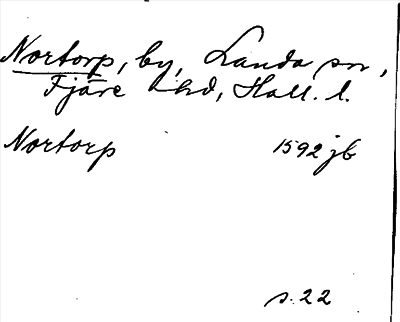 Nortorp, by, Landa sn,
Fjäre hd, Hall. l.
Nortorp 1592 jb
s. 22